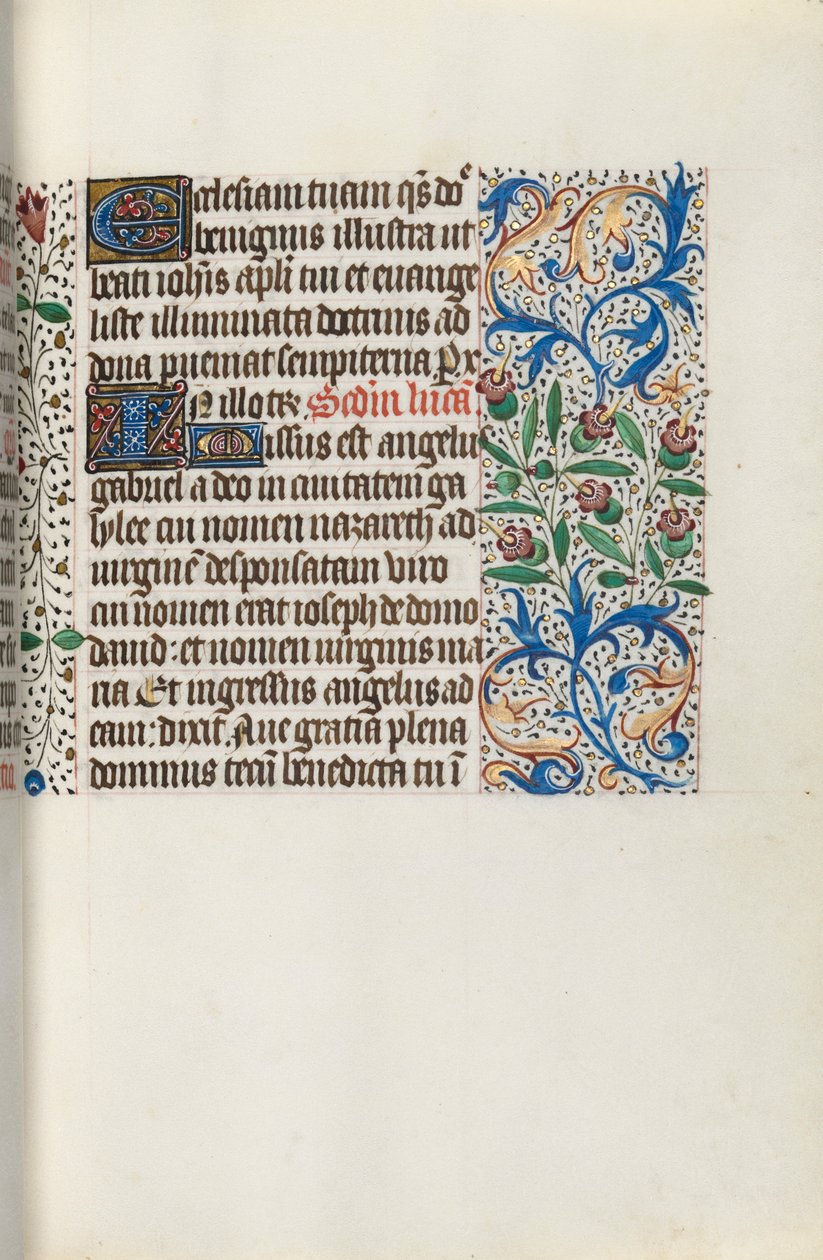 Ecclesiam tuam qs̄ doᵉ
benignus illustra ut
beati ioh̄is apl̄i tui et euange
liste illuminata doctrinis ad
dona pueniat sempiterna. Px
IN illo tꝑe. Scd̄m lucā.
Missus est angelus
gabriel a deo in ciuitatem ga
lylee cui nomen nazareth ad
uirginē desponsatam viro
cui nomen erat ioseph de domo
dauid: et nomen uirginis ma
ria Et ingressus angelus ad
eam: dixit. Aue gratia plena
dominus tecū benedicta tu ī